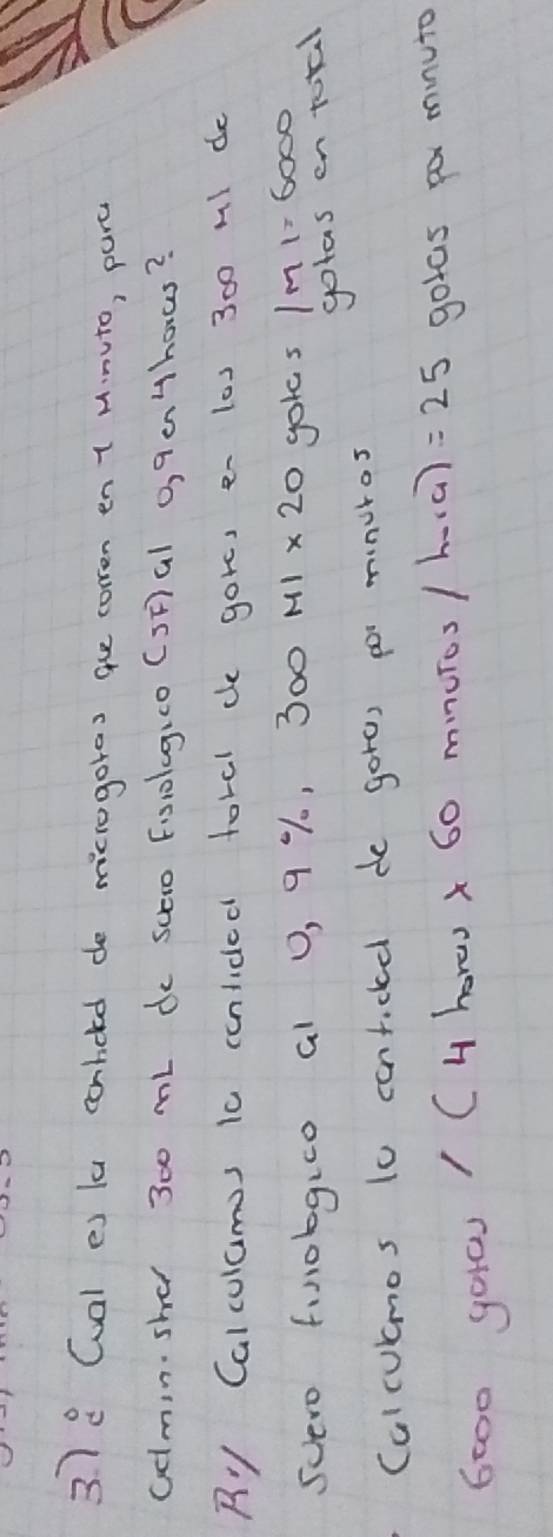 3.) ¿ Cual es la cantidad de microgotas que corren en 1 Minuto, para
administrar 300 mL de suero Fisiologico (SF) al 0,9 en 4 horas?
R:// Calculamos la cantidad total de gotas en los 300 Ml de
suero fisiologico al 0,9%, 300 Ml x 20 gotas / ml = 6000
gotas en total
Calculamos la cantidad de gotas por minutos
6000 gotas / (4 horas x 60 minutos / hora) = 25 gotas por minuto